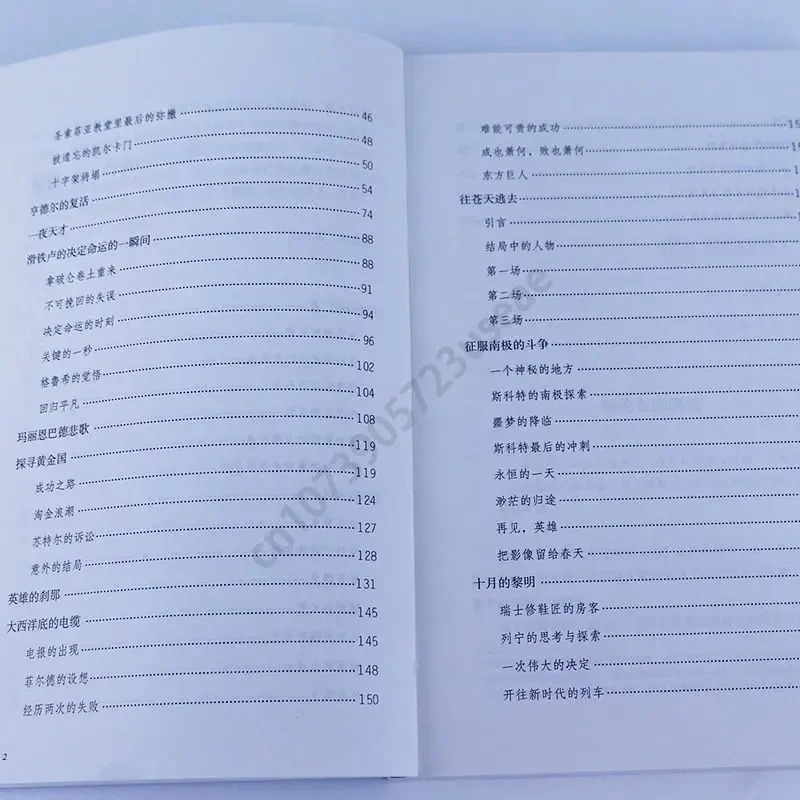 圣索菲亚教堂里最后的弥撒 46
被遗忘的凯尔卡门 48
十字架坍塌 50
亨德尔的复活 54
一夜天才 74
滑铁卢的决定命运的一瞬间 88
拿破仑卷土重来 88
不可挽回的失误 91
决定命运的时刻 94
关键的一秒 96
格鲁希的觉悟 102
回归平凡 104
玛丽恩巴德悲歌 108
探寻黄金国 119
成功之路 119
淘金浪潮 124
苏特尔的诉讼 127
意外的结局 128
英雄的刹那 131
大西洋底的电缆 145
电报的出现 145
菲尔德的设想 148
经历两次的失败 150
2
难能可贵的成功
成也萧何，败也萧何
东方巨人
往苍天逃去
引言
结局中的人物
第一场
第二场
第三场
征服南极的斗争
一个神秘的地方
斯科特的南极探索
噩梦的降临
斯科特最后的冲刺
永恒的一天
渺茫的归途
再见，英雄
把影像留给春天
十月的黎明
瑞士修鞋匠的房客
列宁的思考与探索
一次伟大的决定
开往新时代的列车